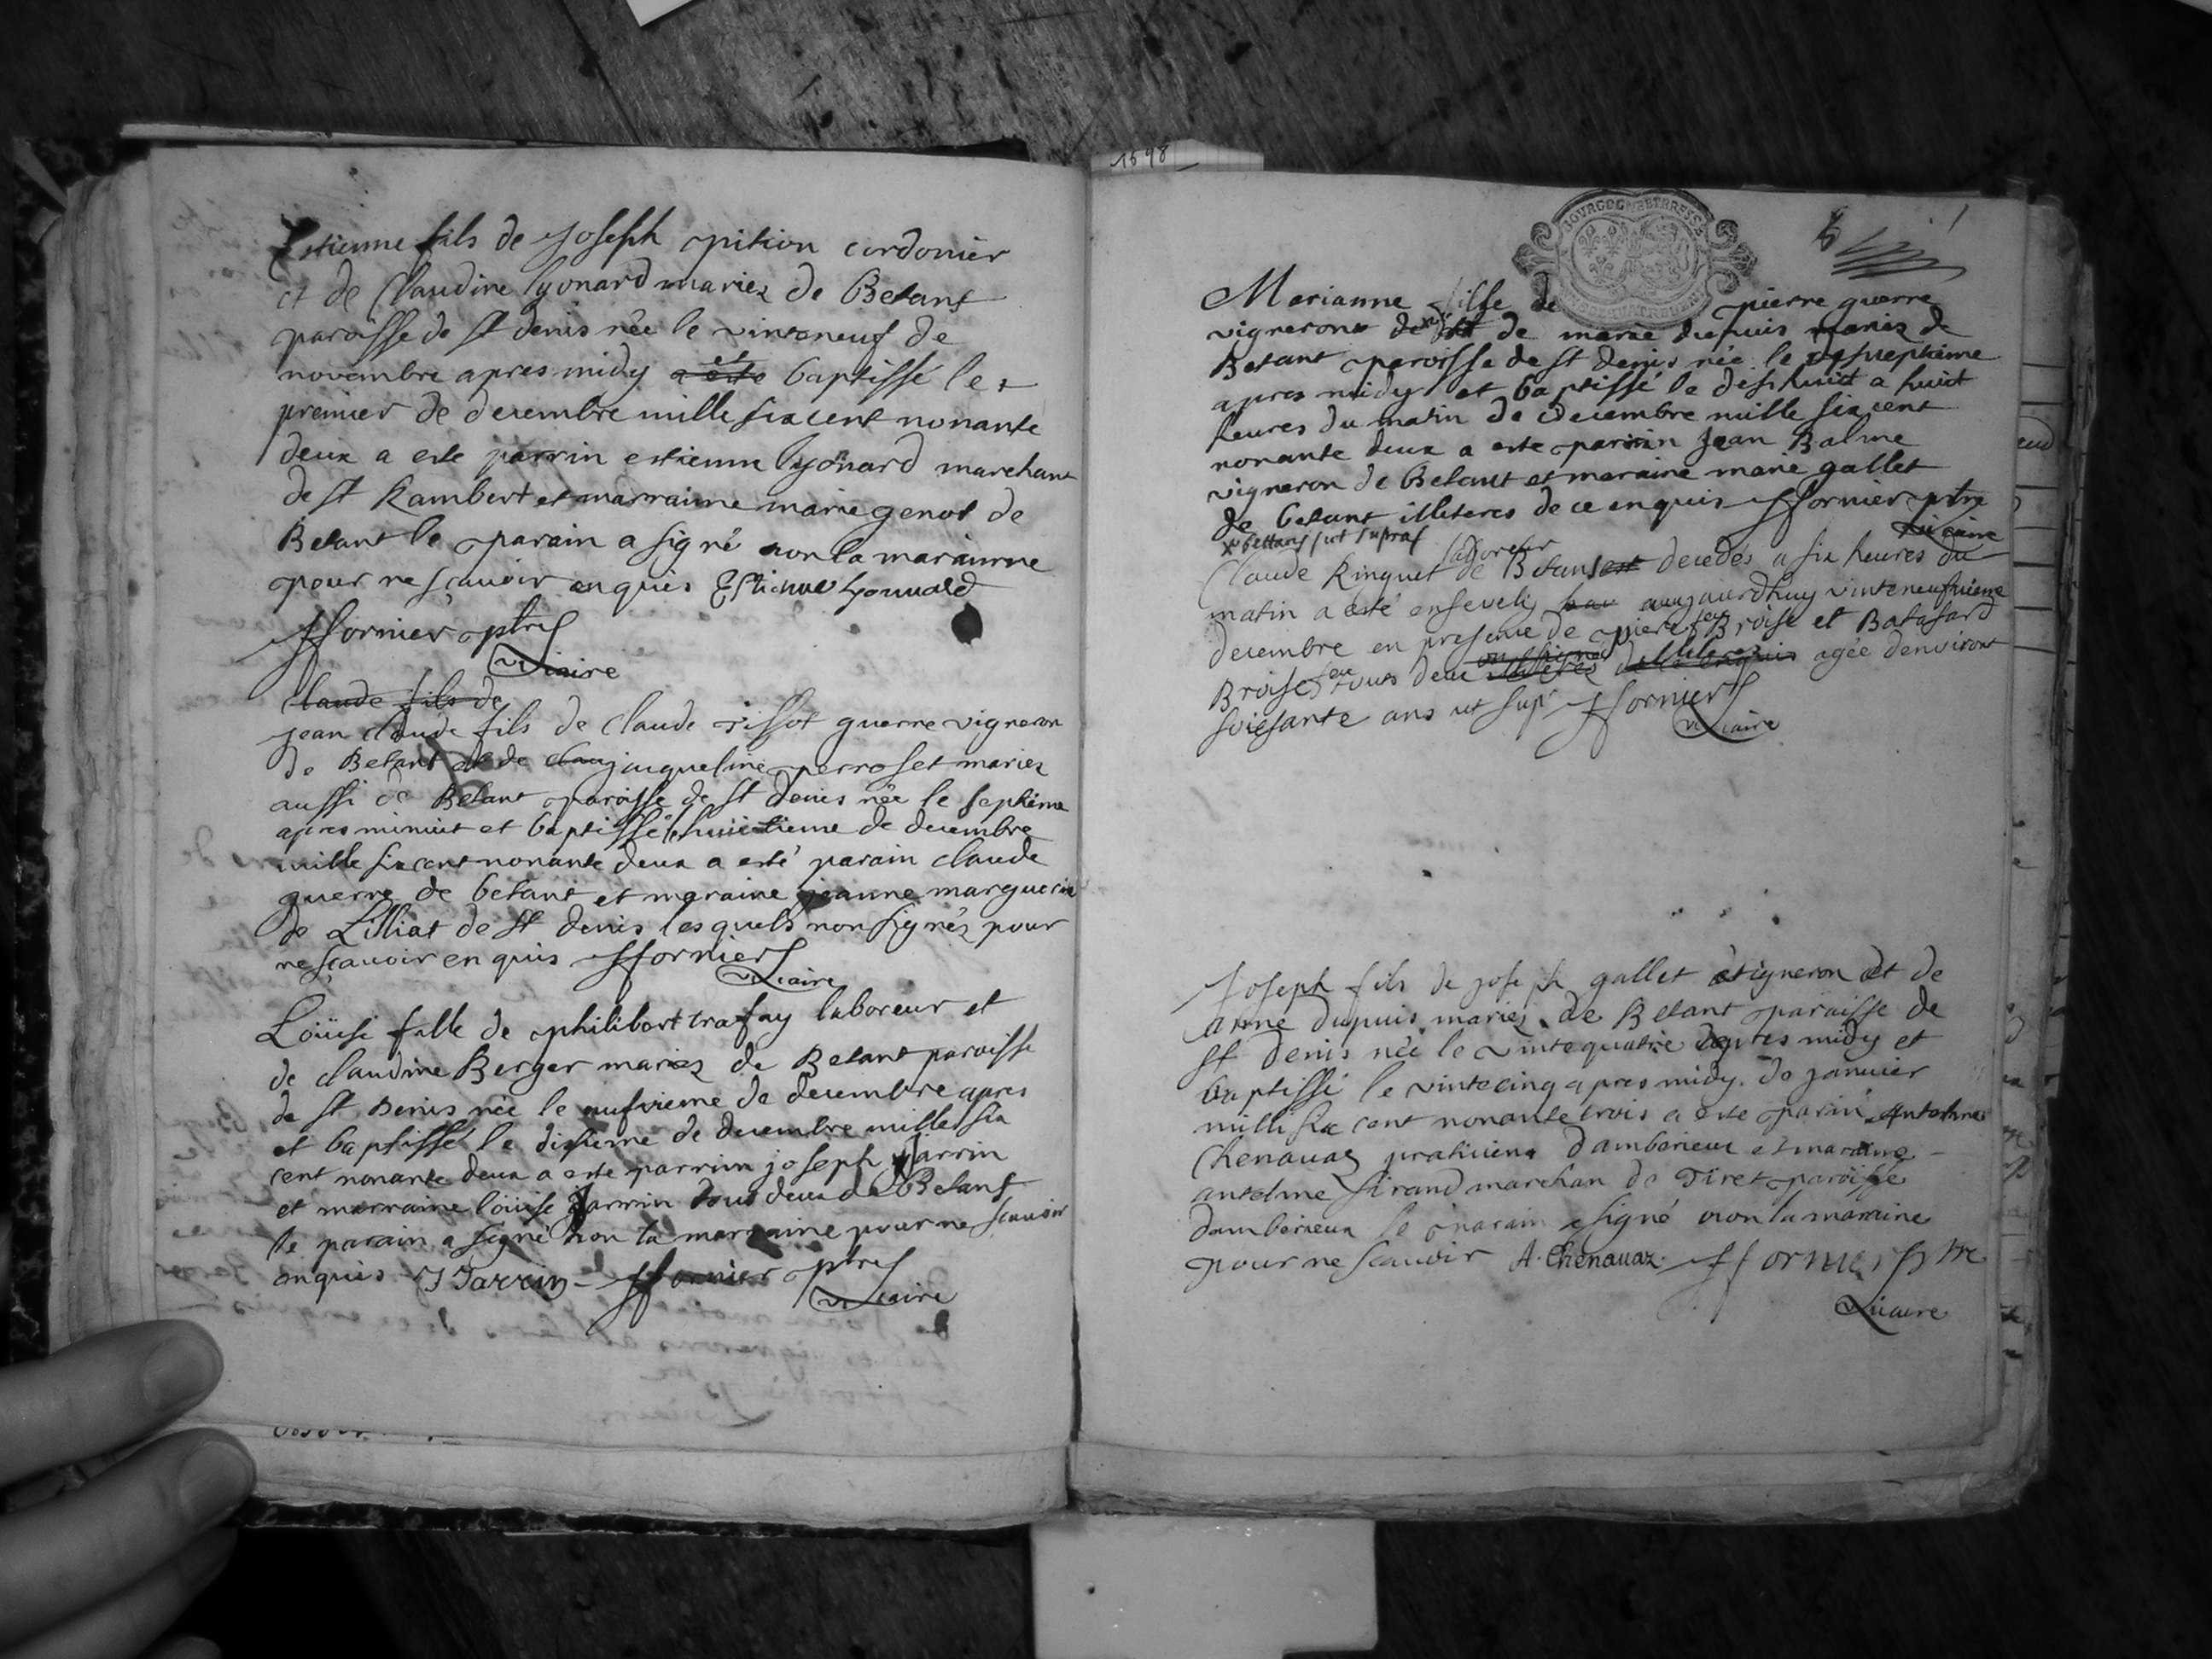 Estienne fils de Joseph pition cordonier
et de Claudine lyonard mariez de Betant
paroisse de st denis née le vinteneuf de
novembre apres midy a esté et baptissé le
premier de decembre mille six cent nonante
deux a este parrin estienne lyonard marchant
de st Rambert et marraine marie genot de
Betant le parain a signé non la maraine
pour ne sçavoir enquis Estienne Lyonnard
fornier ptre
vicaire
Claude fils de
jean claude fils de claude tissot guerre vigneron
de Betant et de clau jacqueline perroset mariez
aussi de Betant paroisse de st denis née le septieme
apres minuit et baptissé le huictieme de decembre
mille six cent nonante deux a esté parain claude
guerre de betant et maraine jeanne marguerin
de Lilliat de st denis lesquels non signéz pour
ne sçavoir enquis ffornier
vicaire
Loüise fille de philibert trafay laboreur et
de claudine Berger mariez de Betant paroisse
de st Denis née le neufvieme de decembre apres
et baptissé le dixieme de decembre mille six
cent nonante deux a este parrin joseph Jarrin
et marraine loüise Jarrin tous deux de Betant
le parain a signé non la marraine pour ne scavoir
enquis J Jarrin ffornier ptre
vicaire
1698
BOURGOGNE ET BRESSE
Marianne fille de pierre guerre
vigneront de et de marie dupuis mariez de
Betant paroisse de st denis née le
apres midy et baptissé le deshuict a huict
heures du matin de decembre mille six cent
nonante deux a este parrin Jean Balme
vigneron de Betant et maraine marie gallet
de betant illiteres de ce enquis ffornier ptre
vicaire
x bettans sut supras
Claude Ringuet laboreur de Betans est decedés a six heures du
matin a esté enseveli aujaurdhuy vinteneufvieme
decembre en presence de piere feu Broise et Batasard
Broises feu tous deux non signés illiteres de ce enquis agée denviront
soiesante ans ut sup ffornier
vicaire
Joseph fils de joseph gallet vigneron et de
anne dupuis mariez de Betant paraisse de
st denis née le vintequatre apres midy et
baptissé le vintecinq apres midy de janvier
mille six cent nonante trois a este parin Antoine
Chenavaz praticien damberieux et maraine
antelme sirand marchan de Tiret paroisse
damberieux le parain a signé non la maraine
pour ne scavoir A. Chenavaz. ffornier ptre
vicaire